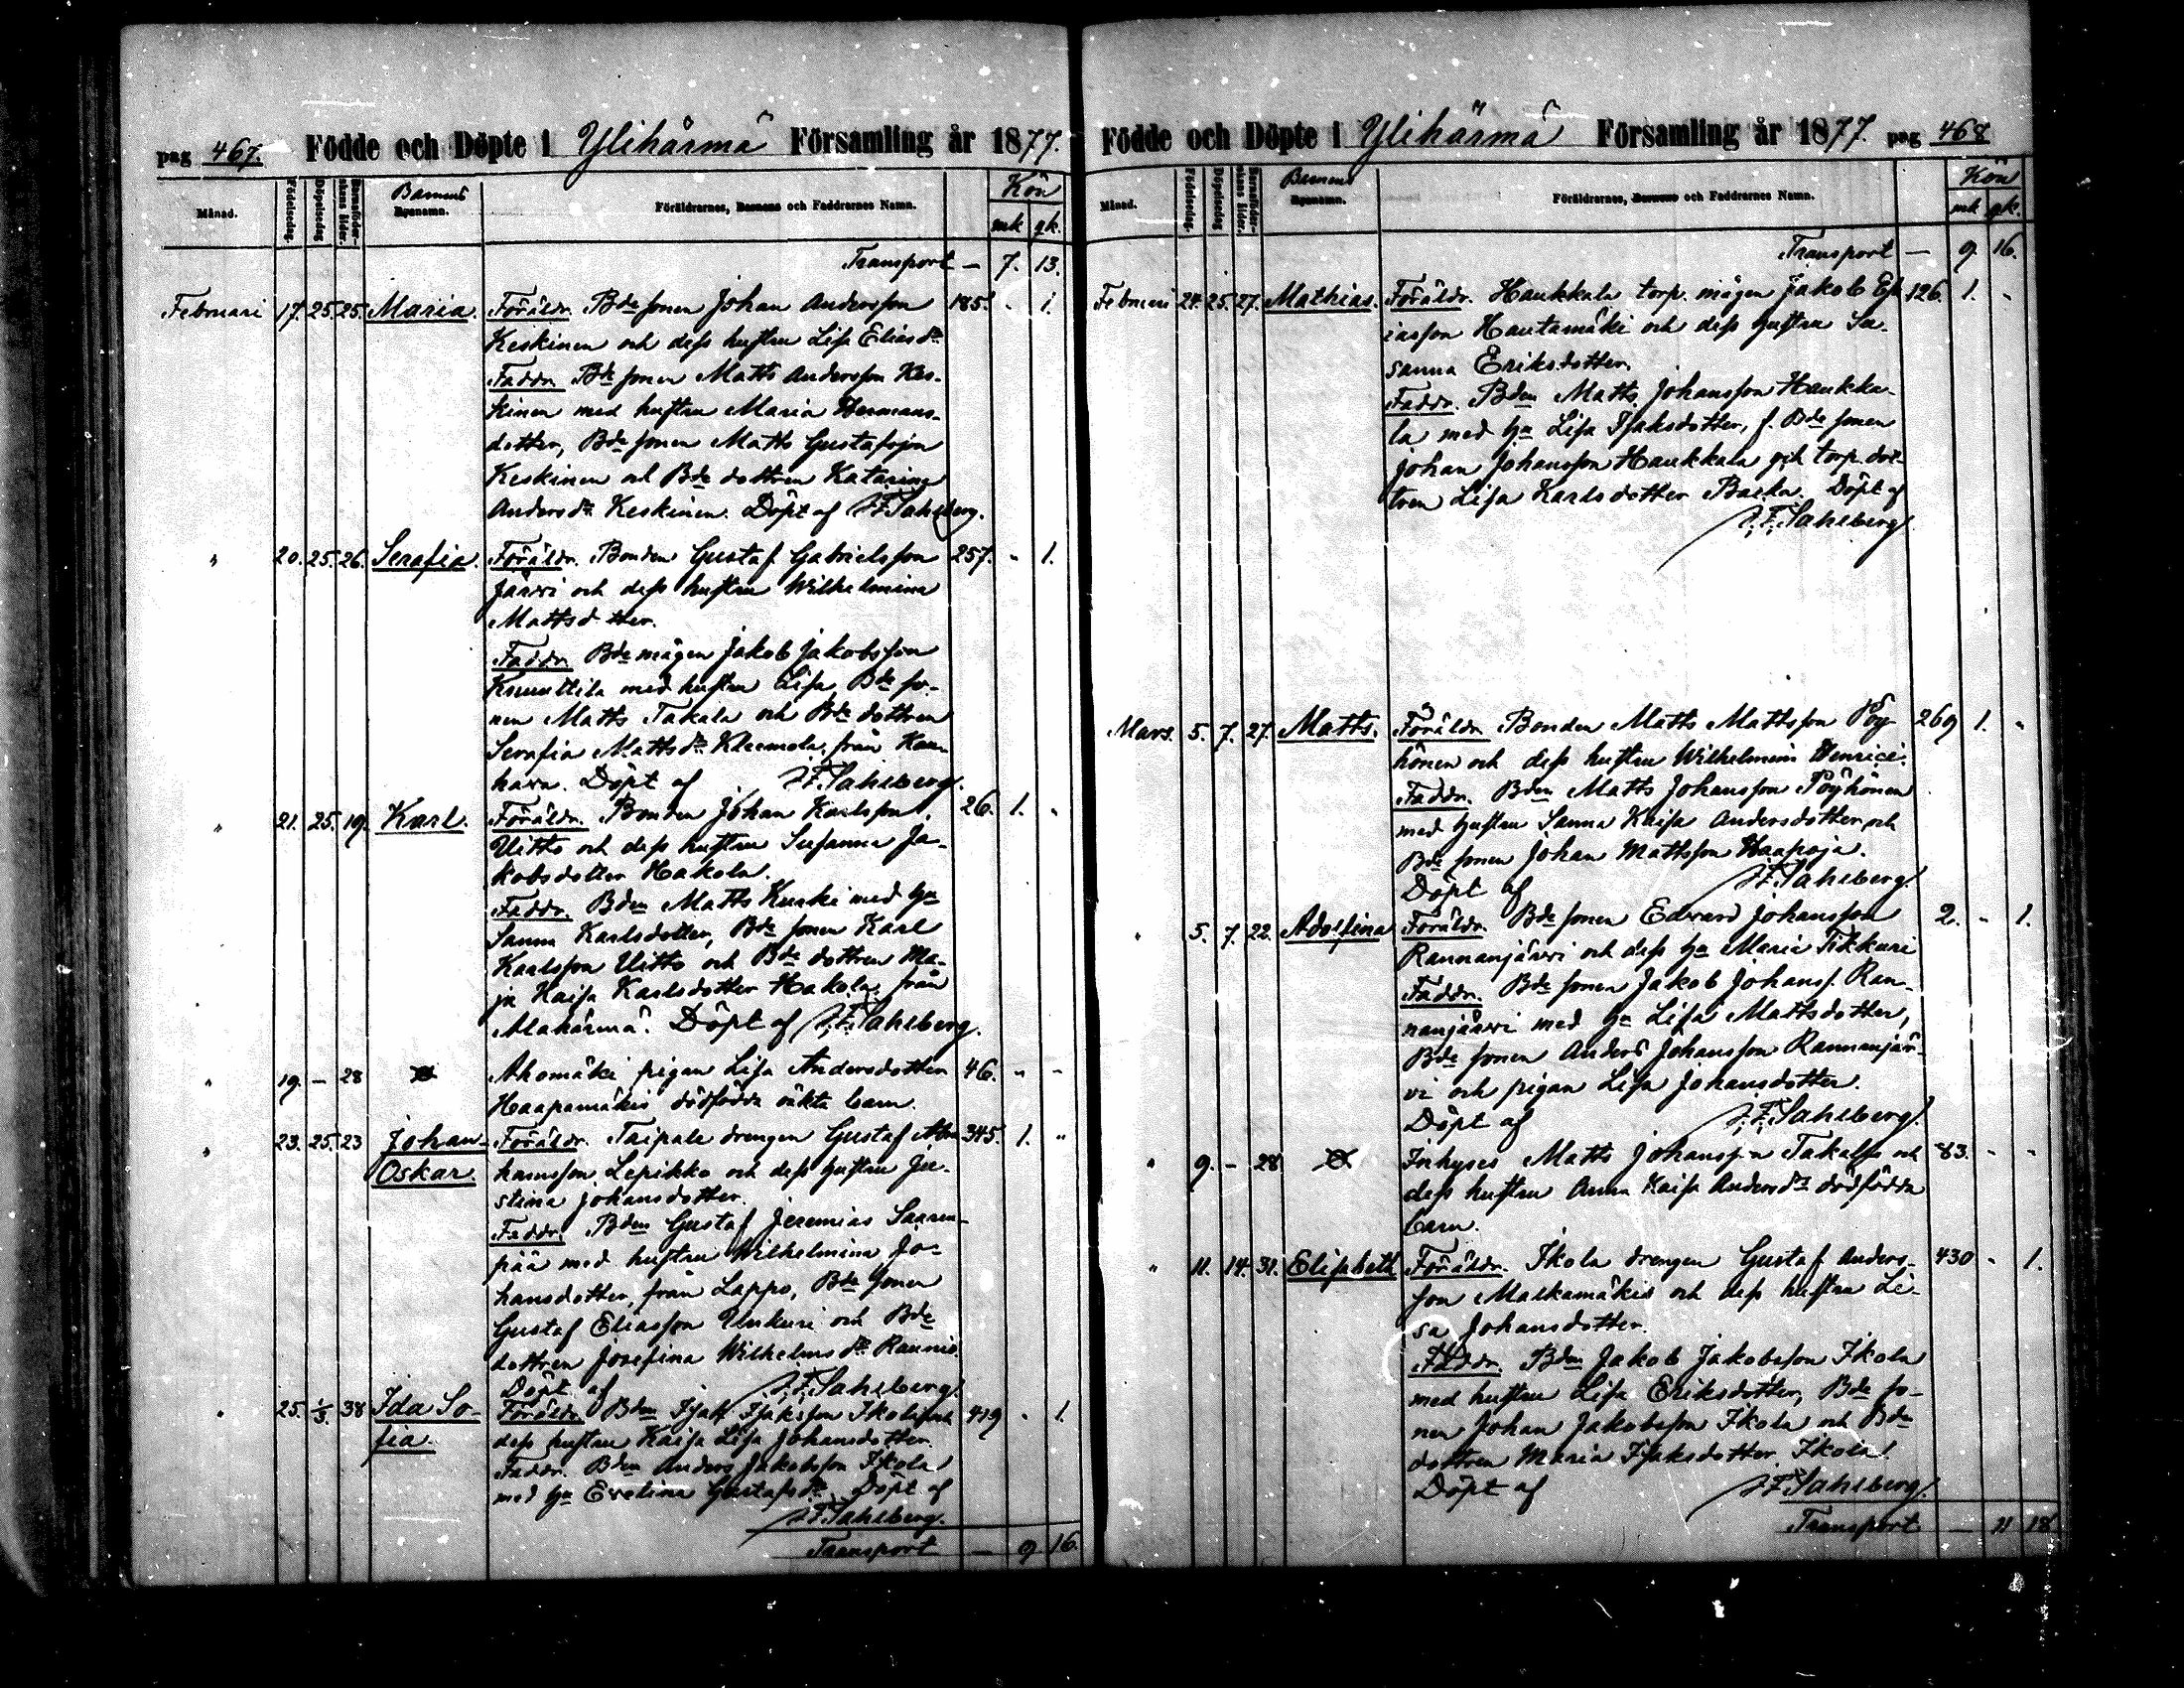 pag 467. Födde och Döpte i Ylihärmä Församling år 1877.
Månad. Födelsedag. Döpelsedag Barnaföderskans ålder. Barnens Egnamn. Föräldrarnes, Barnens och Faddrarnes Namn. Kön
mk qk.
Transport — 7. 13.
Februari 17. 25. 25. Maria. Föräldr. Bde sonen Johan Andersson 185. " 1.
Keskinen och dess hustru Lisa Eliasdr
Faddr. Bde sonen Matts Andersson Kes-
kinen med hustru Maria Hermans-
dotter, Bde sonen Matts Gustafsson
Keskinen och Bde dottren Katarina
Andersdr Keskinen. Döpt af J.F. Sahlberg.
" 20. 25. 26. Serafia. Föräldr. Bonden Gustaf Gabrielsson 257. " 1.
Järvi och dess hustru Wilhelmina
Mattsdtter.
Faddr. Bde mågen Jakob Jakobsson
Knuuttila med hustru Lisa, Bde so-
nen Matts Takala och Bde dottren
Serafia Mattsdr Kleemola, från Kau-
hava. Döpt af J.F. Sahlberg.
" 21. 25. 19. Karl. Föräldr. Bonden Johan Karlsson 26. 1. "
Uitto och dess hustru Susanna Ja-
kobsdotter Hakola.
Faddr. Bden Matts Kurki med hu
Sanna Karlsdotter, Bde sonen Karl
Karlsson Uitto och Bde dottren Ma-
ja Kaisa Karlsdotter Hakola, från
Alahärmä. Döpt af J.F. Sahlberg.
" 19. — 28 Ahomäki pigan Lisa Andersdotter 46. " "
Haapamäkis dödfödda oäkta barn.
" 23. 25. 23 Johan Föräldr. Taipale drengen Gustaf Abra 345. 1. "
Oskar. hamsson Lepikko och dess hustru Ju-
stina Johansdotter.
Faddr. Bden Gustaf Jeremias Saaren-
pää med hustru Wilhelmina Jo-
hansdotter, från Lappo, Bde sonen
Gustaf Eliasson Unkuri och Bde
dottren Josefina Wilhelmsdr Raunio.
Döpt af J.F. Sahlberg.
" 25. 1/3. 38 Ida So- Föräldr. Bden Isak Isaksson Ikola och 419 " 1.
fia. dess hustru Kaisa Lisa Johansdotter.
Faddr. Bden Anders Jakobsson Ikola
med hu Evelina Gustafsdr. Döpt af
J.F. Sahlberg.
Transport — 9 16.
Födde och Döpte i Ylihärmä Församling år 1877. pag 468
Månad. Födelsedag. Döpelsedag Barnaföderskans ålder. Barnens Egnamn. Föräldrarnes, Barnens och Faddrarnes Namn. Kön
mk qk.
Transport — 9. 16.
Februari 24. 25. 27. Mathias. Föräldr. Haukkala torp. mågen Jakob Es- 126. 1. "
iasson Hautamäki och dess hustru Su-
sanna Eriksdotter.
Faddr. Bden Matts Johansson Haukka-
la med hu Lisa Isaksdotter, f. Bde sonen
Johan Johansson Haukkala och torp. dot-
tren Lisa Karlsdotter Backa. Döpt af
J.F. Sahlberg.
Mars. 5. 7. 27. Matts. Föräldr. Bonden Matts Mattsson Pöy- 269 1. "
hönen och dess hustru Wilhelmina Henrici.
Faddr. Bden Matts Johansson Pöyhönen
med hustru Sanna Kaisa Andersdotter och
Bde sonen Johan Mattsson Haapoja.
Döpt af J.F. Sahlberg.
" 5. 7. 22. Adolfina Föräldr. Bde sonen Edvard Johansson 2. " 1.
Rannanjärvi och dess hu Maria Tikkuri
Faddr. Bde sonen Jakob Johanss. Ran-
nanjärvi med hu Lisa Mattsdotter,
Bde sonen Anders Johansson Rannanjär-
vi och pigan Lisa Johansdotter.
Döpt af J.F. Sahlberg.
" 9. — 28 Inhyses Matts Johansson Takala och 83. " "
dess hustru Anna Kaisa Andersdrs dödfödda
barn.
" 11. 14. 31. Elisabeth Föräldr. Ikola drengen Gustaf Anders- 430 " 1.
son Malkamäkis och dess hustru Li-
sa Johansdotter.
Faddr. Bden Jakob Jakobsson Ikola
med hustru Lisa Eriksdotter, Bde so-
nen Johan Jakobsson Ikola och Bde
dottren Maria Isaksdotter Ikola.
Döpt af J.F. Sahlberg.
Transport — 11 18